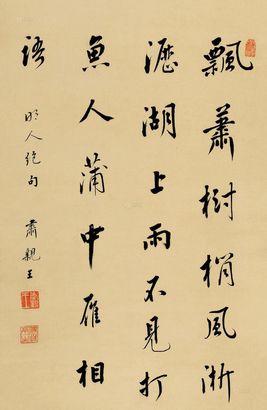 飄蕭樹梢風淅
瀝湖上雨不見打
魚人蒲中雁相
語
明人絕句
肅親王